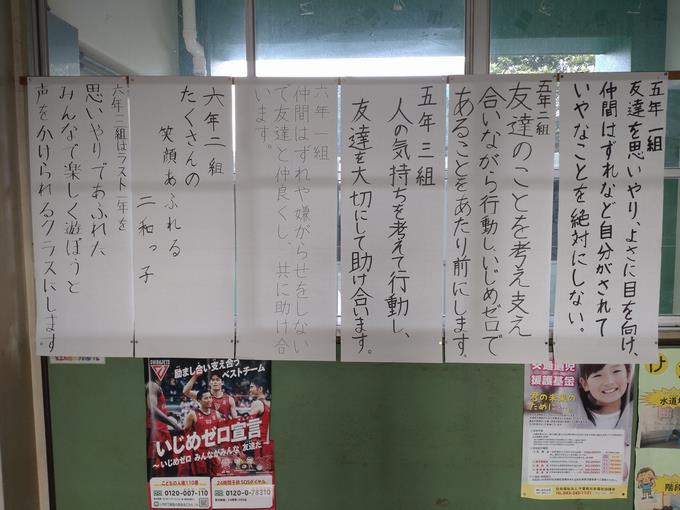 五年一組
友達を思いやり、よさに目を向け、
仲間はずれなど自分がされて
いやなことを絶対にしない。
五年二組
友達のことを考え支え
合いながら行動し、いじめゼロで
あることをあたり前にします。
五年三組
人の気持ちを考えて行動し、
友達を大切にして助け合います。
六年一組
仲間はずれや嫌がらせをしない
で友達と仲良くし、共に助け合
います。
六年二組
たくさんの
笑顔あふれる
二和っ子
六年二組はラスト一年を
思いやりであふれた
みんなで楽しく遊ぼうと
声をかけられるクラスにします。
CHIBAJETS
励まし合い支え合う
ベストチーム
いじめゼロ宣言
～いじめゼロ みんながみんな 友達だ～
こどもの人権110番
0120-007-110
24時間子供SOSダイヤル
0120-0-78310
交通遺児
援護基金
君の未来の
ために…
043-245-1101
け
水道
階段